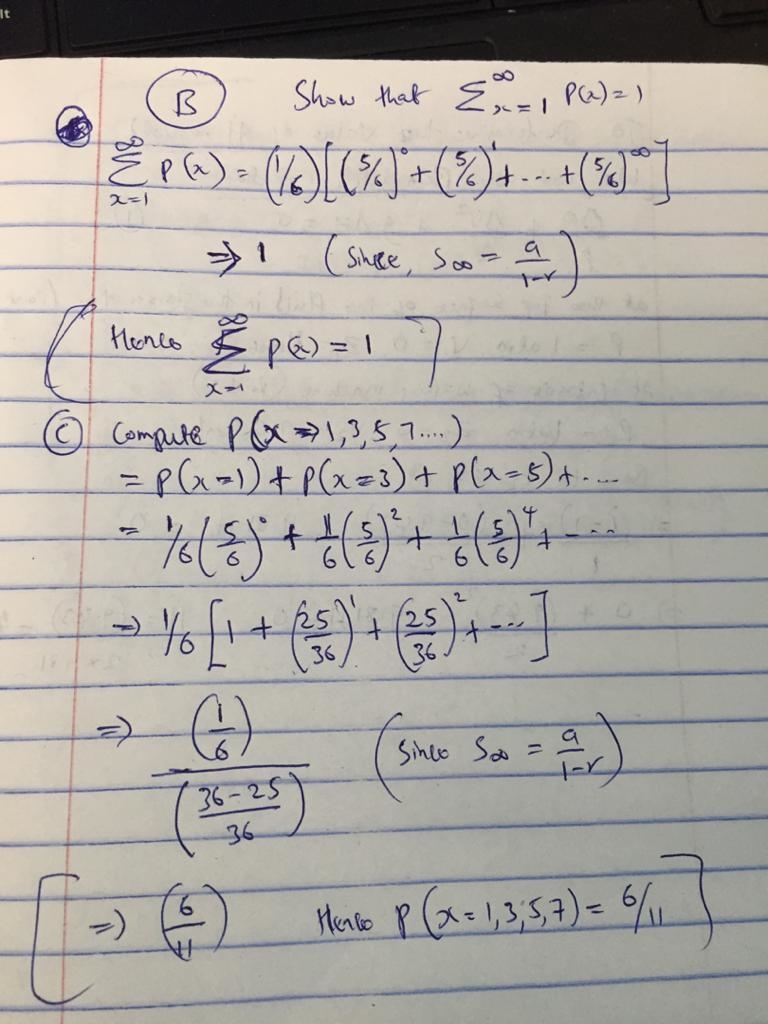 lt
B Show that ∑_{x=1}^{∞} P(x)=1
∑_{x=1}^{∞} P(x) = (1/6)[(5/6)^0 + (5/6)^1 + ... + (5/6)^∞]
⇒ 1 (Since, S∞ = a/(1-r))
[Hence ∑_{x=1}^{∞} P(x) = 1]
C Compute P(x ⇒ 1,3,5,7....)
= P(x=1) + P(x=3) + P(x=5) + ....
= 1/6 (5/6)^0 + 1/6 (5/6)^2 + 1/6 (5/6)^4 + ....
⇒ 1/6 [1 + (25/36)^1 + (25/36)^2 + ...]
⇒ (1/6) / ((36-25)/36) (Since S∞ = a/(1-r))
[⇒ (6/11) Hence P(x=1,3,5,7) = 6/11]